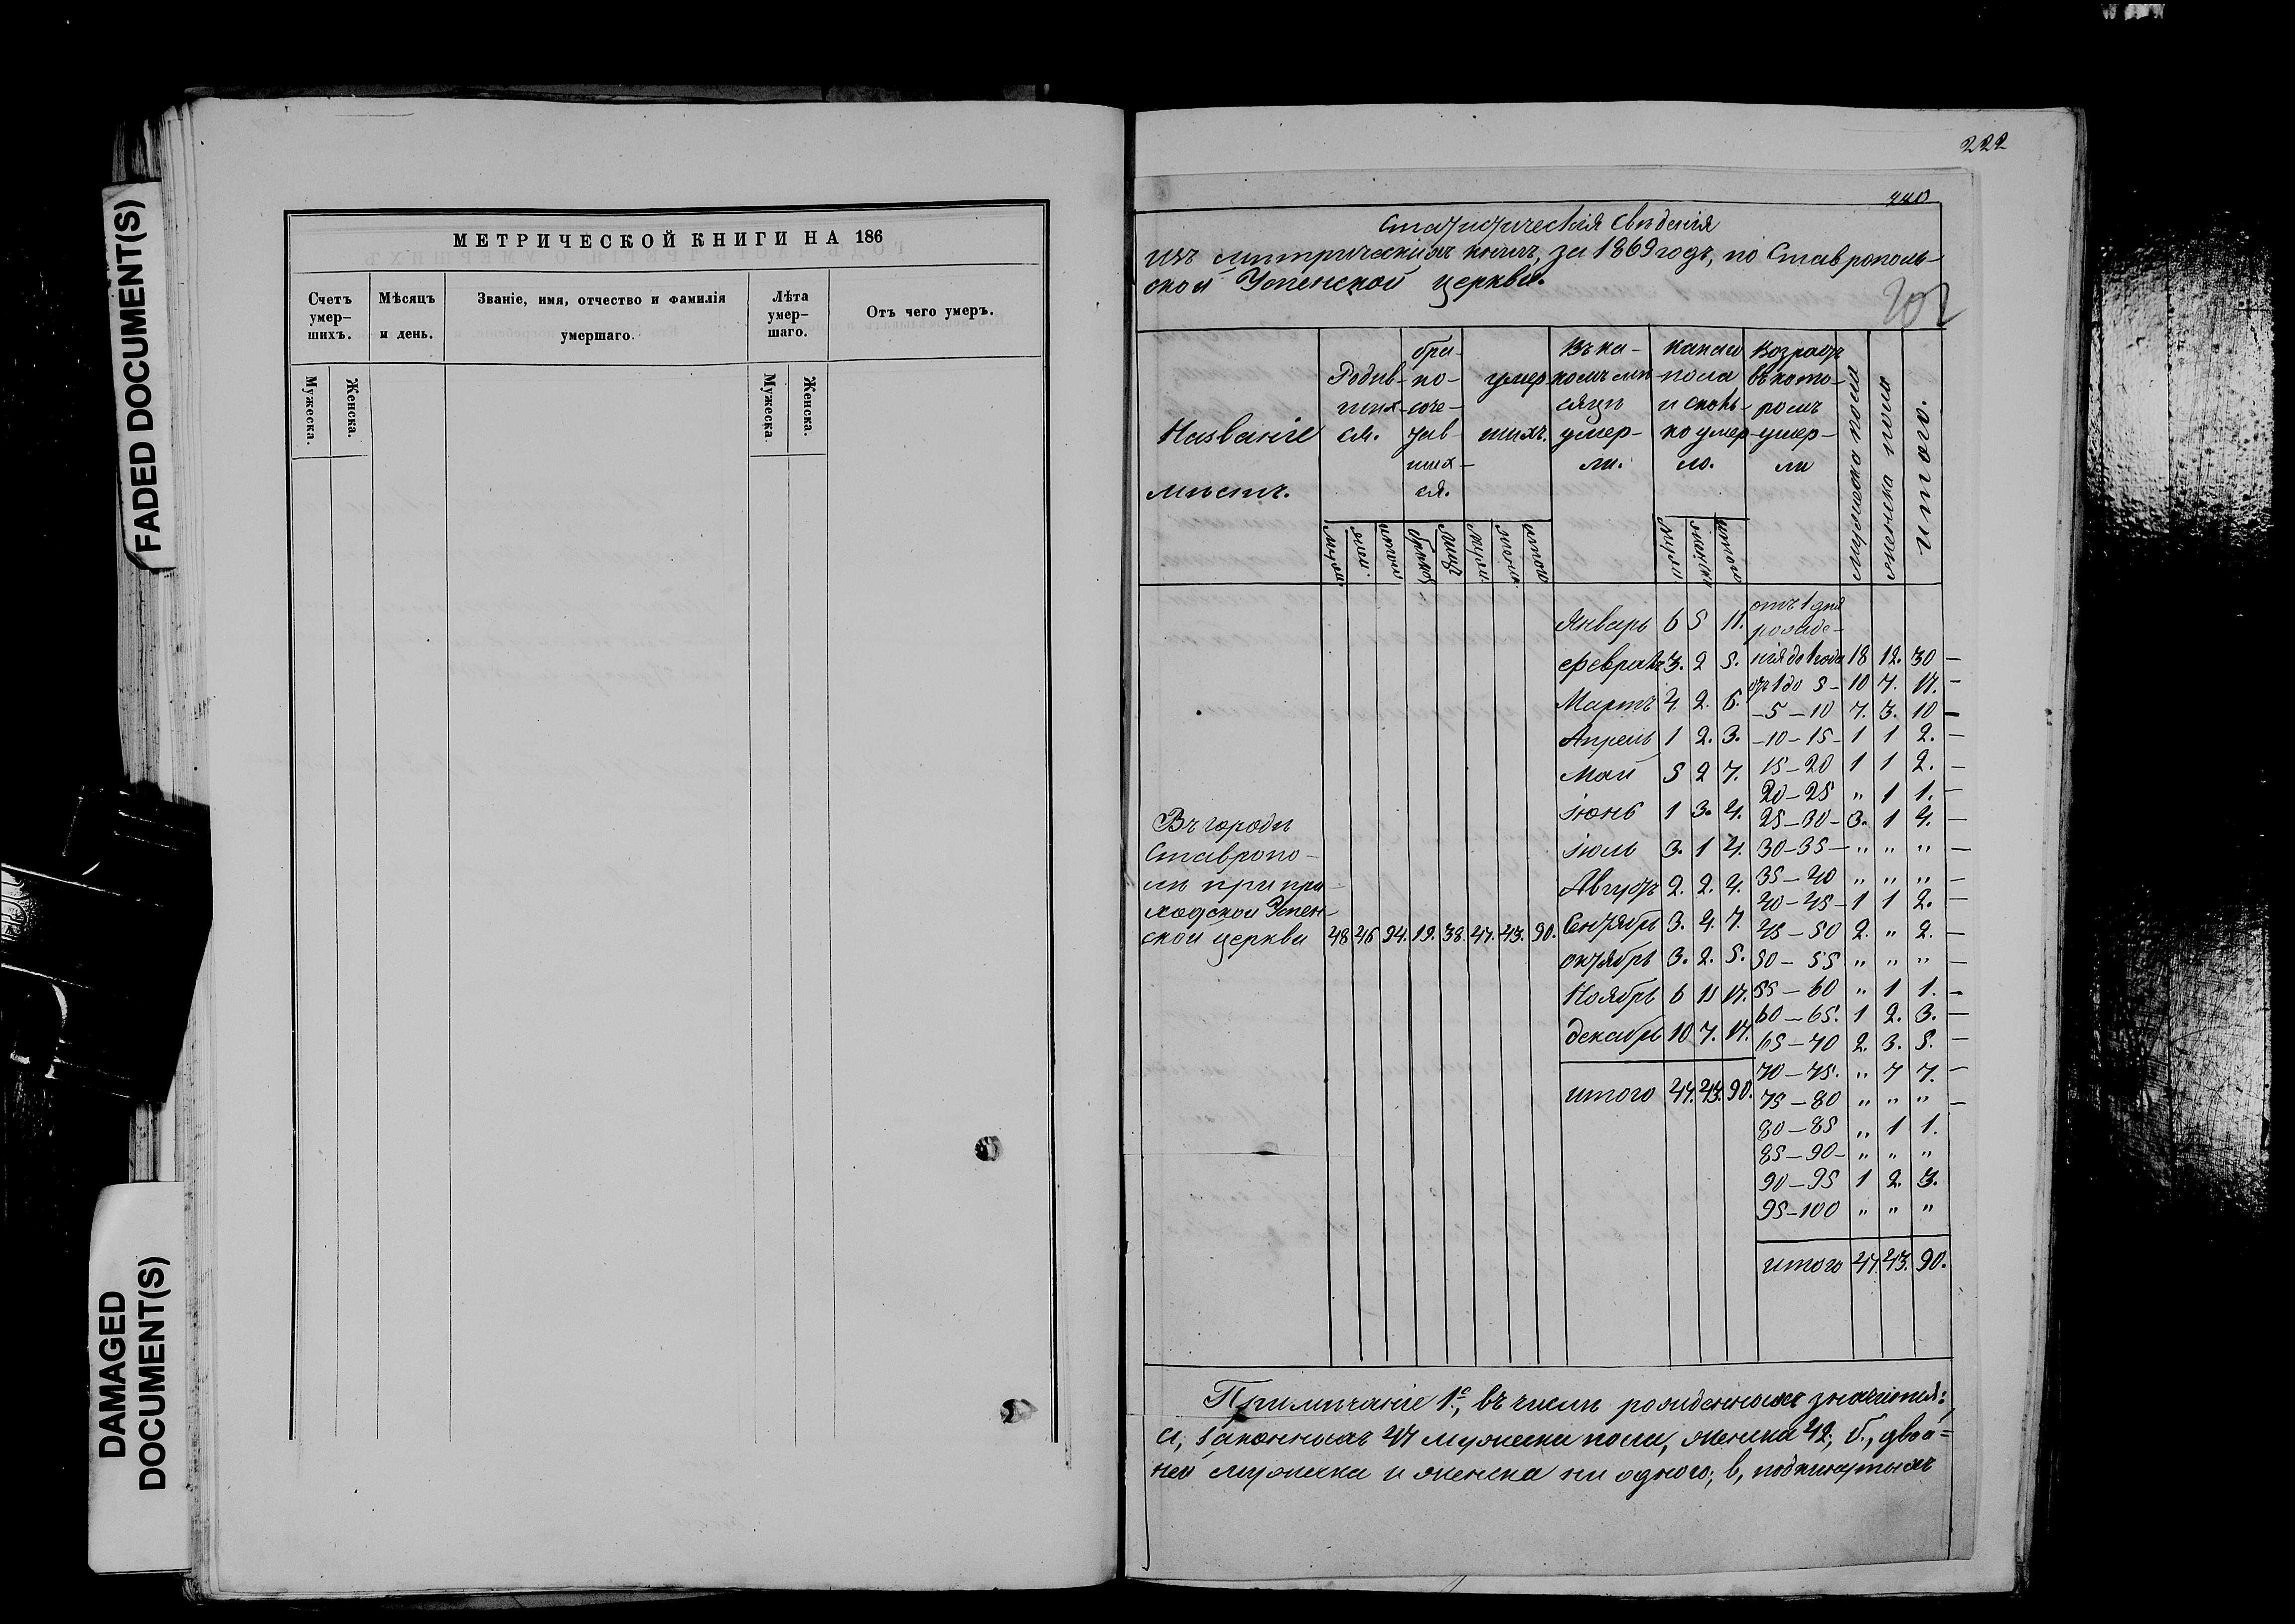 FADED DOCUMENT(S)
DAMAGED
DOCUMENT(S)
МЕТРИЧЕСКОЙ КНИГИ НА 186
Счетъ умер-шихъ.
Мѣсяцъ и день.
Званіе, имя, отчество и фамилія умершаго.
Лѣта умер-шаго.
Отъ чего умеръ.
Мужеска.
Женска.
Мужеска
Женска.
222
220
Статистическія свѣденія
изъ метрическихъ книгъ, за 1869 годъ, по Ставрополь-
ской Успенской церкви.
Названіе мѣстъ.
Родив-шихся.
бра-ко-соче-тав-ших-ся.
умер шихъ.
Въ ка-комъ мѣ-сяцѣ умер-ли.
какаго пола и сколь-ко умер-ло.
Возрастъ въ кото-ромъ умер-ли
мужеска пола
женска пола
итого.
муж. жен. итого браков лицъ муж. женск. итого муж. женск итого
Январь 6 5 11.
Февраль 3. 2 5.
Мартъ 4. 2. 6.
Апрель 1 2. 3.
Май 5 2 7.
Іюнь 1 3. 4.
Іюль 3. 1 4.
Августъ 2. 2. 4.
Сентябрь 3. 4. 7.
октябрь 3. 2. 5.
Ноябрь 6 11 17.
декабрь 10 7. 17.
итого 47. 43. 90.
отъ 1 дня
рожде-
нія до 1 года 18 12. 30 —
отъ 1 до 5 — 10 7. 17. —
— 5 — 10 7. 3. 10 —
— 10 — 15 — 1 1 2. —
15 — 20 1 1 2. —
20 — 25 " 1 1. —
25 — 30 — 3. 1 4. —
30 — 35 — " " " —
35 — 40 " " " —
40 — 45 — 1 1 2. —
45 — 50 2. " 2. —
50 — 55 " " " —
55 — 60 " 1 1. —
60 — 65. 1 2. 3. —
65 — 70 2. 3. 5. —
70 — 75. " 7 7. —
75 — 80 " " " —
80 — 85 " 1 1.
85 — 90 — " " "
90 — 95 1 2. 3.
95 — 100 " " "
итого 47. 43. 90.
Въ городѣ
Ставропо-
лѣ при при-
ходской Успен-
ской церкви 48 46 94. 19. 38. 47. 43. 90.
Примѣчаніе 1е, въ числѣ рожденныхъ значится:
а, законныхъ 47 мужеска пола, женска 42; б., двой=
ней мужеска и женска ни одного; в, подкинутыхъ